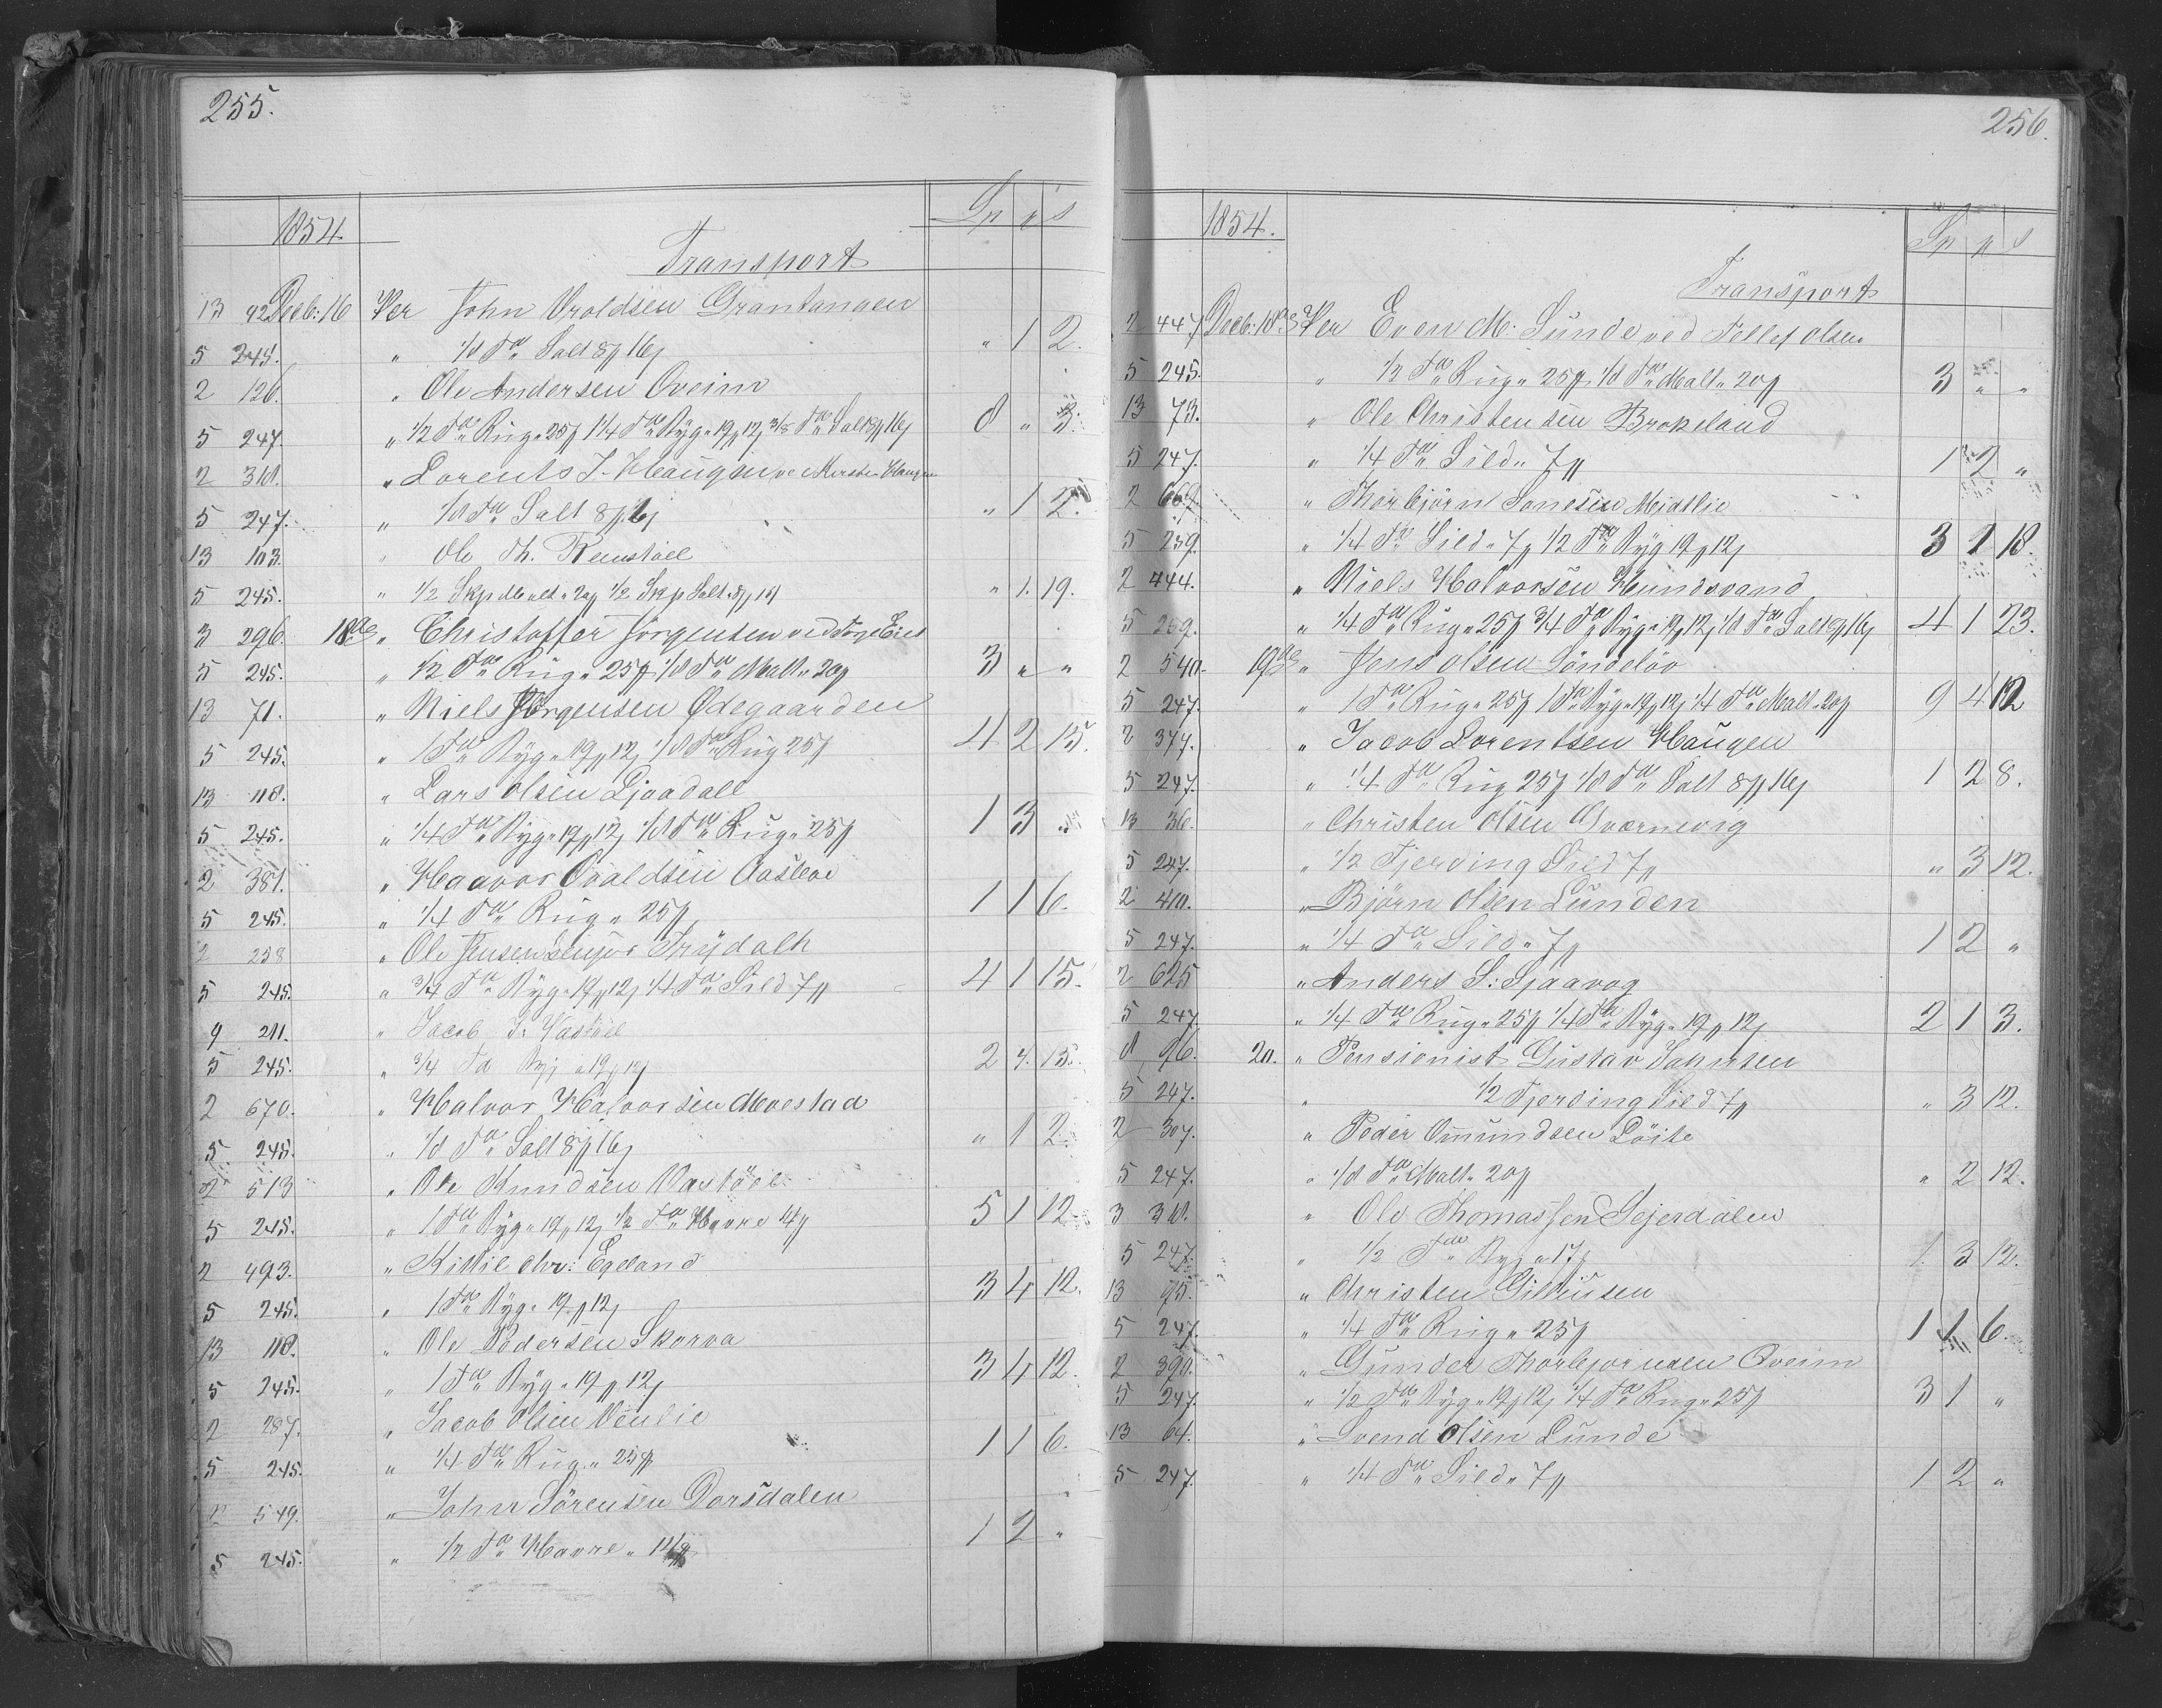 255.
1854
Sp p s
Transport
13 92 Decb: 16 Per John Uroldsen Grantangen
5 245. " 1/8 Tde Salt 8p 16s " 1 2.
2 126. " Ole Andersen Oveim
5 247. " 1/2 Tde Rug " 25p 1 1/4 Tde Byg " 19p 12s 3/8 Tde Salt 8p 16s 8 " 3.
2 318. " Lorents J. Haugen
5 247. " 1/8 Tde Salt 8p 16s " 1 2.
13 103. " Ole Th. Remstöel
5 245. " 1/2 Skp Malt " 20p 1/2 Skp Salt " 8p 16s " 1. 19.
3 296. 18de " Christoffer Jörgensen ved
5 245. " 1/2 Tde Rug " 25p 1/8 Tde Malt " 20p 3 " "
13 71. " Niels Jörgensen Ødegaarden
5 245. " 1 Tde Byg " 19p 12s 1/8 Tde Rug 25p 4 2 15.
13 118. " Lars Olsen Ljaadall
5 245. " 1/4 Tde Byg " 19p 12s 1/8 Tde Rug " 25p 1 3
2 381. " Haavor Ovaldsen Aasleve
5 245. " 1/4 Tde Rug " 25p 1 1 6.
2 258 " Ole Jensen Senjor Frydalh
5 245. " 3/4 Tde Byg " 19p 12s 1/4 Tde Sild 7p 4 1 15.
9 211. " Jacob J. Vastöel
5 245. " 3/4 Td Byg " 19p 12s 2 4. 15.
2 670. " Halvor Halvorsen Moestad
5 245. " 1/8 Tde Salt 8p 16s " 1 2.
2 513 " Ole Knudsen Vastöel
5 245. " 1 Tde Byg " 19p 12s 1/2 Tde Havre 14p 5 1 12.
2 493. " Kittil Chr: Egeland
5 245. " 1 Tde Byg " 19p 12s 3 4 12.
13 118. " Ole Pedersen Skorva
5 245. " 1 Tde Byg " 19p 12s 3 4 12.
2 287. " Jacob Olsen Venlie
5 245. " 1/4 Tde Rug " 25p 1 1 6.
2 549. " John Sörensen Dorsdalen
5 245. " 1/2 Tde Havre " 14p 1 2 "
256.
1854.
Sp p s
Transport
2 447 Decb: 18de Per Even M. Sunde ved Tellef Olsen
5 245. " 1/2 Tde Rug " 25p 1/8 Tde Malt " 20p 3 " "
13 73. " Ole Christensen Brokeland
5 247. " 1/4 Tde Sild " 7p 1 2 "
2 667 " Thorbjörn Jonesen Midtlie
5 259. " 1/4 Tde Sild " 7p 1/2 Tde Byg 19p 12s 3 1 18.
2 444. " Niels Halvorsen Hundsvand
5 259. " 1/4 Tde Rug " 25p 3/4 Tde Byg " 19p 12s 1/8 Tde Salt 8p 16s 4 1 23.
2 540. 19de " Jens Olsen Söndelöv
5 247. " 1 Tde Rug " 25p 1 Tde Byg " 19p 12s 1/4 Tde Malt " 20p 9 4 12
2 377. " Jacob Lorentsen Haugen
5 247. " 1/4 Tde Rug 25p 1/8 Tde Salt 8p 16s 1 2 8.
13 36. " Christen Olsen Qværnevig
5 247. " 1/2 Fjerding Sild 7p " 3 12.
2 410. " Björn Olsen Lunden
5 247. " 1/4 Tde Sild " 7p 1 2 "
2 625 " Anders S. Sjaavog
5 247 " 1/4 Tde Rug " 25p 1/4 Tde Byg " 19p 12s 2 1 3.
8 96. 20. " Pensionist Gustav Jahnsen
5 247. " 1/2 Fjerding Sild 7p " 3 12.
2 307. " Peder Omundsen Löite
5 247. " 1/8 Tde Malt " 20p " 2 12.
3 311. " Ole Thomassen Sejerdalen
5 247. " 1/2 Tde Byg " 17p 1 3 12.
13 75. " Christen Gilliusen
5 247. " 1/4 Tde Rug " 25p 1 1 6.
2 390. " Gunder Thorbjornsen Oveim
5 247. " 1/2 Tde Byg " 19p 12s 1/4 Tde Rug " 25p 3 1 "
13 64. " Svend Olsen Lunde
5 247. " 1/4 Tde Sild " 7p 1 2 "